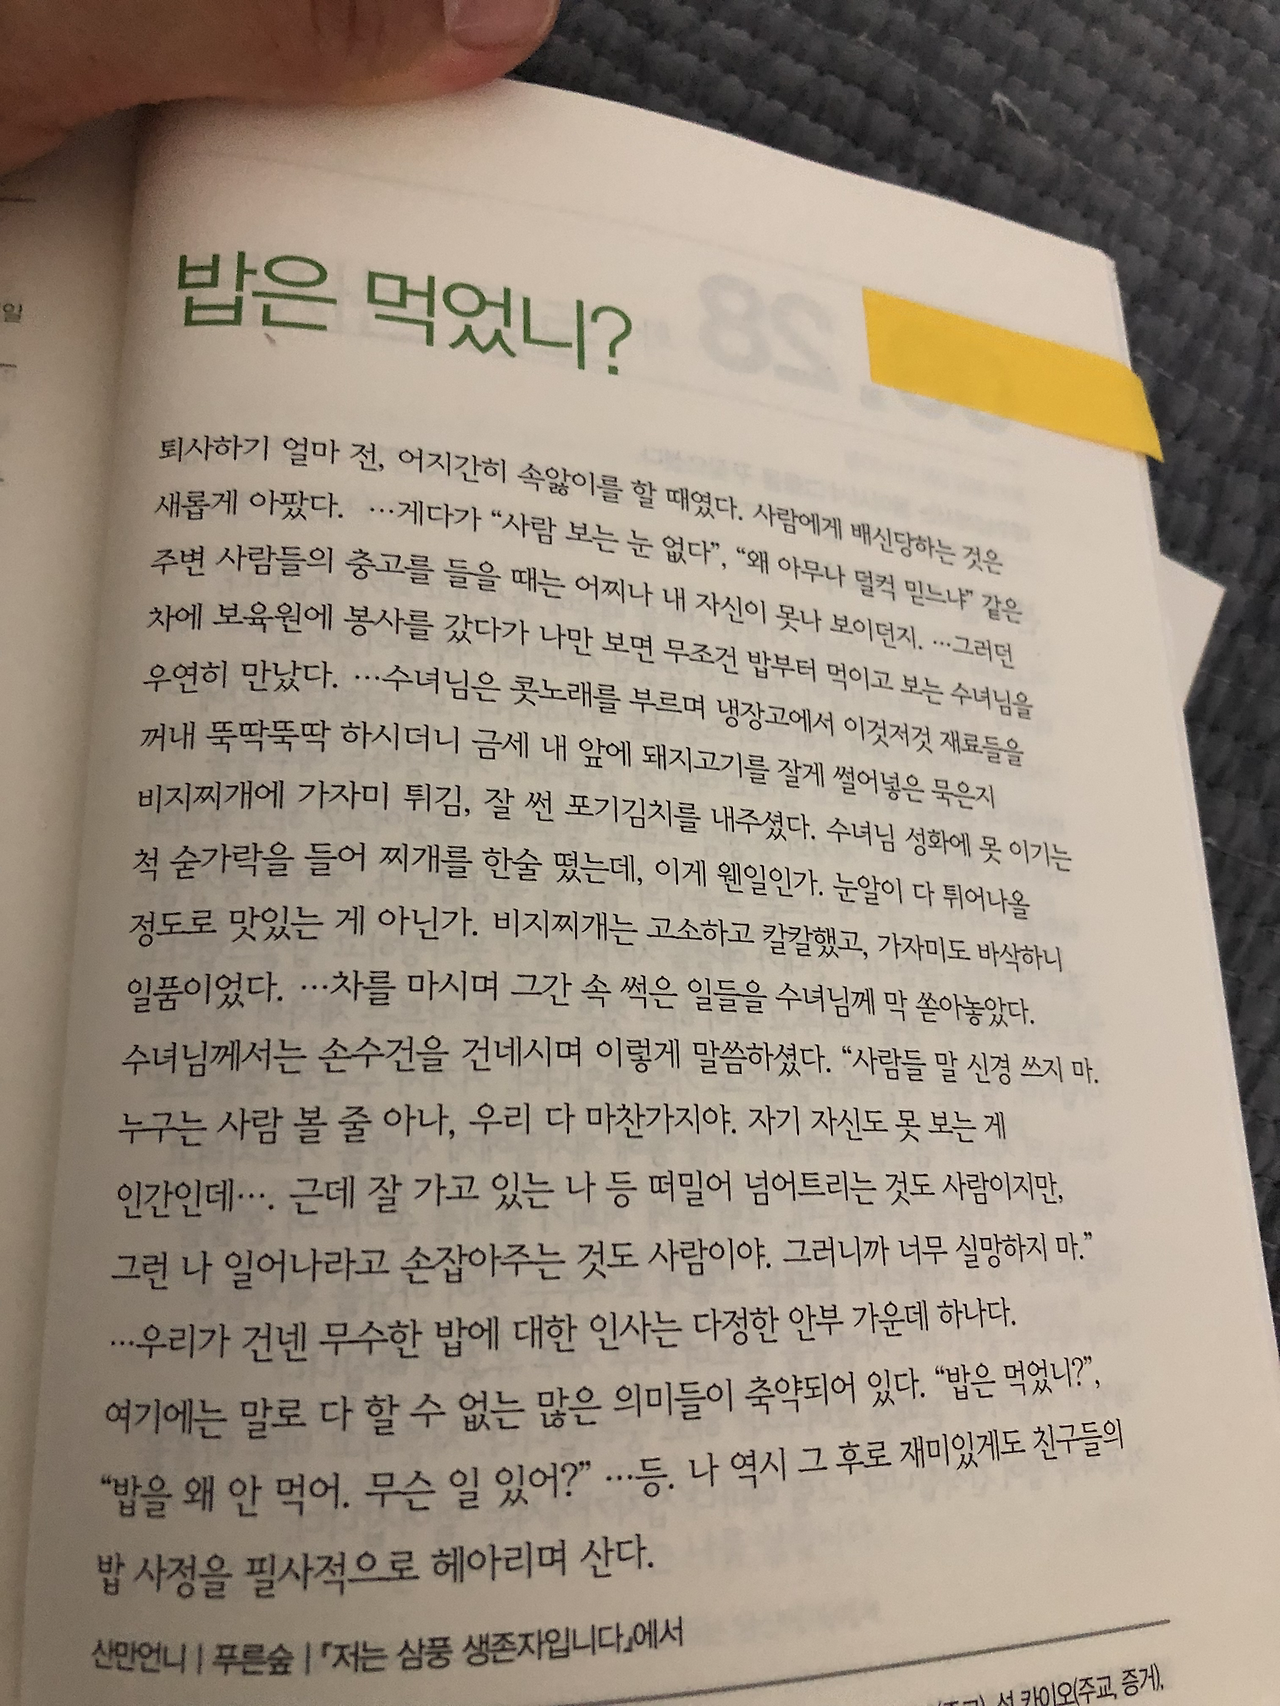 일
밥은 먹었니?
28
퇴사하기 얼마 전, 어지간히 속앓이를 할 때였다. 사람에게 배신당하는 것은
새롭게 아팠다. …게다가 “사람 보는 눈 없다”, “왜 아무나 덜컥 믿느냐” 같은
주변 사람들의 충고를 들을 때는 어찌나 내 자신이 못나 보이던지. …그러던
차에 보육원에 봉사를 갔다가 나만 보면 무조건 밥부터 먹이고 보는 수녀님을
우연히 만났다. …수녀님은 콧노래를 부르며 냉장고에서 이것저것 재료들을
꺼내 뚝딱뚝딱 하시더니 금세 내 앞에 돼지고기를 잘게 썰어넣은 묵은지
비지찌개에 가자미 튀김, 잘 썬 포기김치를 내주셨다. 수녀님 성화에 못 이기는
척 숟가락을 들어 찌개를 한술 떴는데, 이게 웬일인가. 눈알이 다 튀어나올
정도로 맛있는 게 아닌가. 비지찌개는 고소하고 칼칼했고, 가자미도 바삭하니
일품이었다. …차를 마시며 그간 속 썩은 일들을 수녀님께 막 쏟아놓았다.
수녀님께서는 손수건을 건네시며 이렇게 말씀하셨다. “사람들 말 신경 쓰지 마.
누구는 사람 볼 줄 아나, 우리 다 마찬가지야. 자기 자신도 못 보는 게
인간인데…. 근데 잘 가고 있는 나 등 떠밀어 넘어트리는 것도 사람이지만,
그런 나 일어나라고 손잡아주는 것도 사람이야. 그러니까 너무 실망하지 마.”
…우리가 건넨 무수한 밥에 대한 인사는 다정한 안부 가운데 하나다.
여기에는 말로 다 할 수 없는 많은 의미들이 축약되어 있다. “밥은 먹었니?”,
“밥을 왜 안 먹어. 무슨 일 있어?” …등. 나 역시 그 후로 재미있게도 친구들의
밥 사정을 필사적으로 헤아리며 산다.
산만언니 | 푸른숲 | 『저는 삼풍 생존자입니다』에서
성 카이오(주교, 증거),